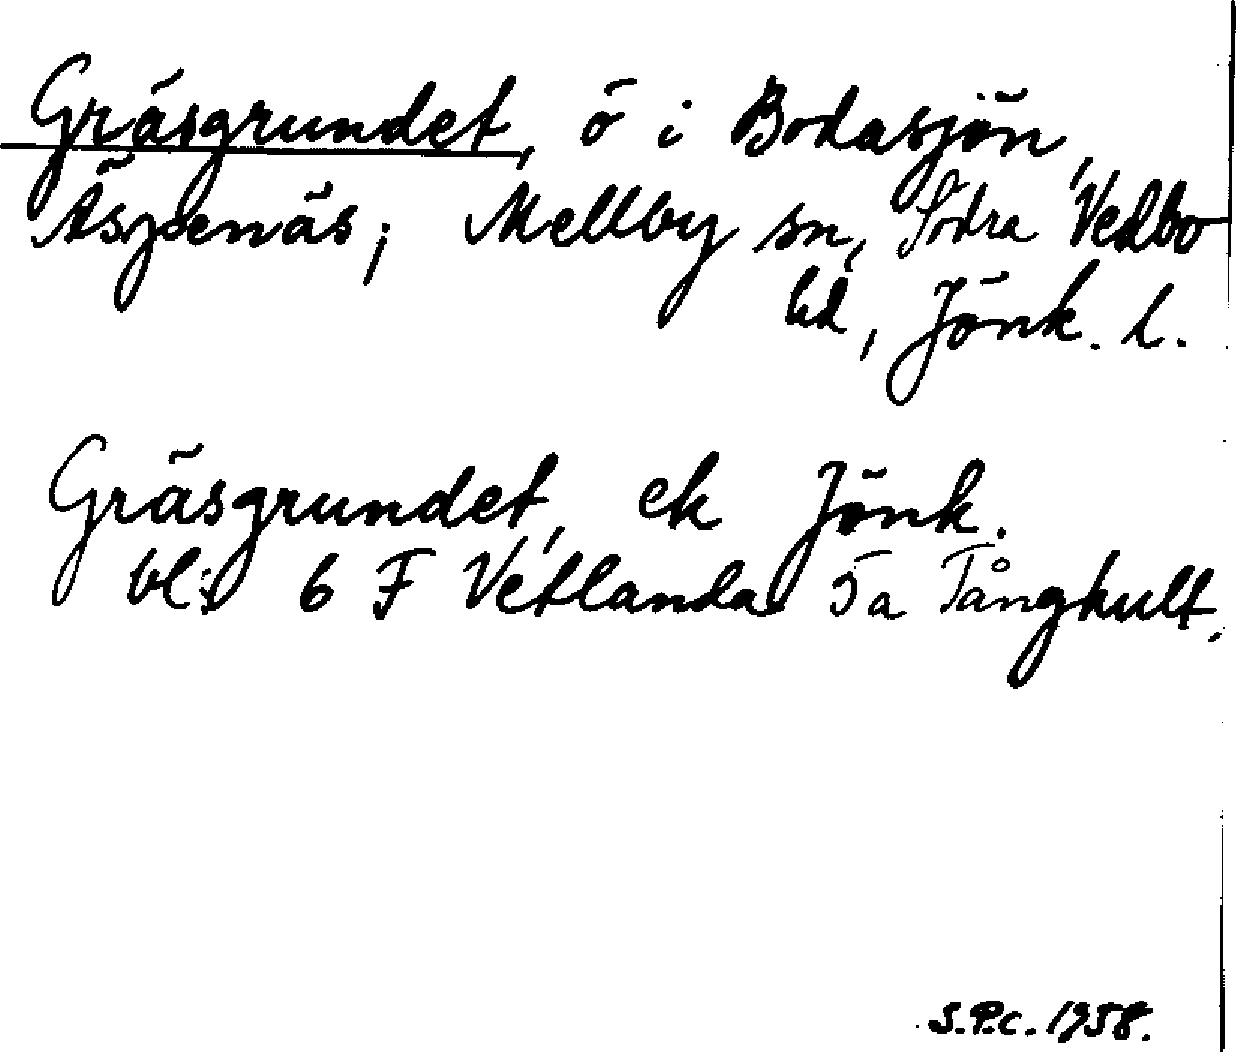 Gräsgrundet, ö i Bodasjön,
Äspenäs; Mellby sn, Södra Vedbo
hd, Jönk. l.
Gräsgrundet, ek Jönk.
bl: 6 F Vetlanda 5a Tånghult.
S.P.c. 1958.